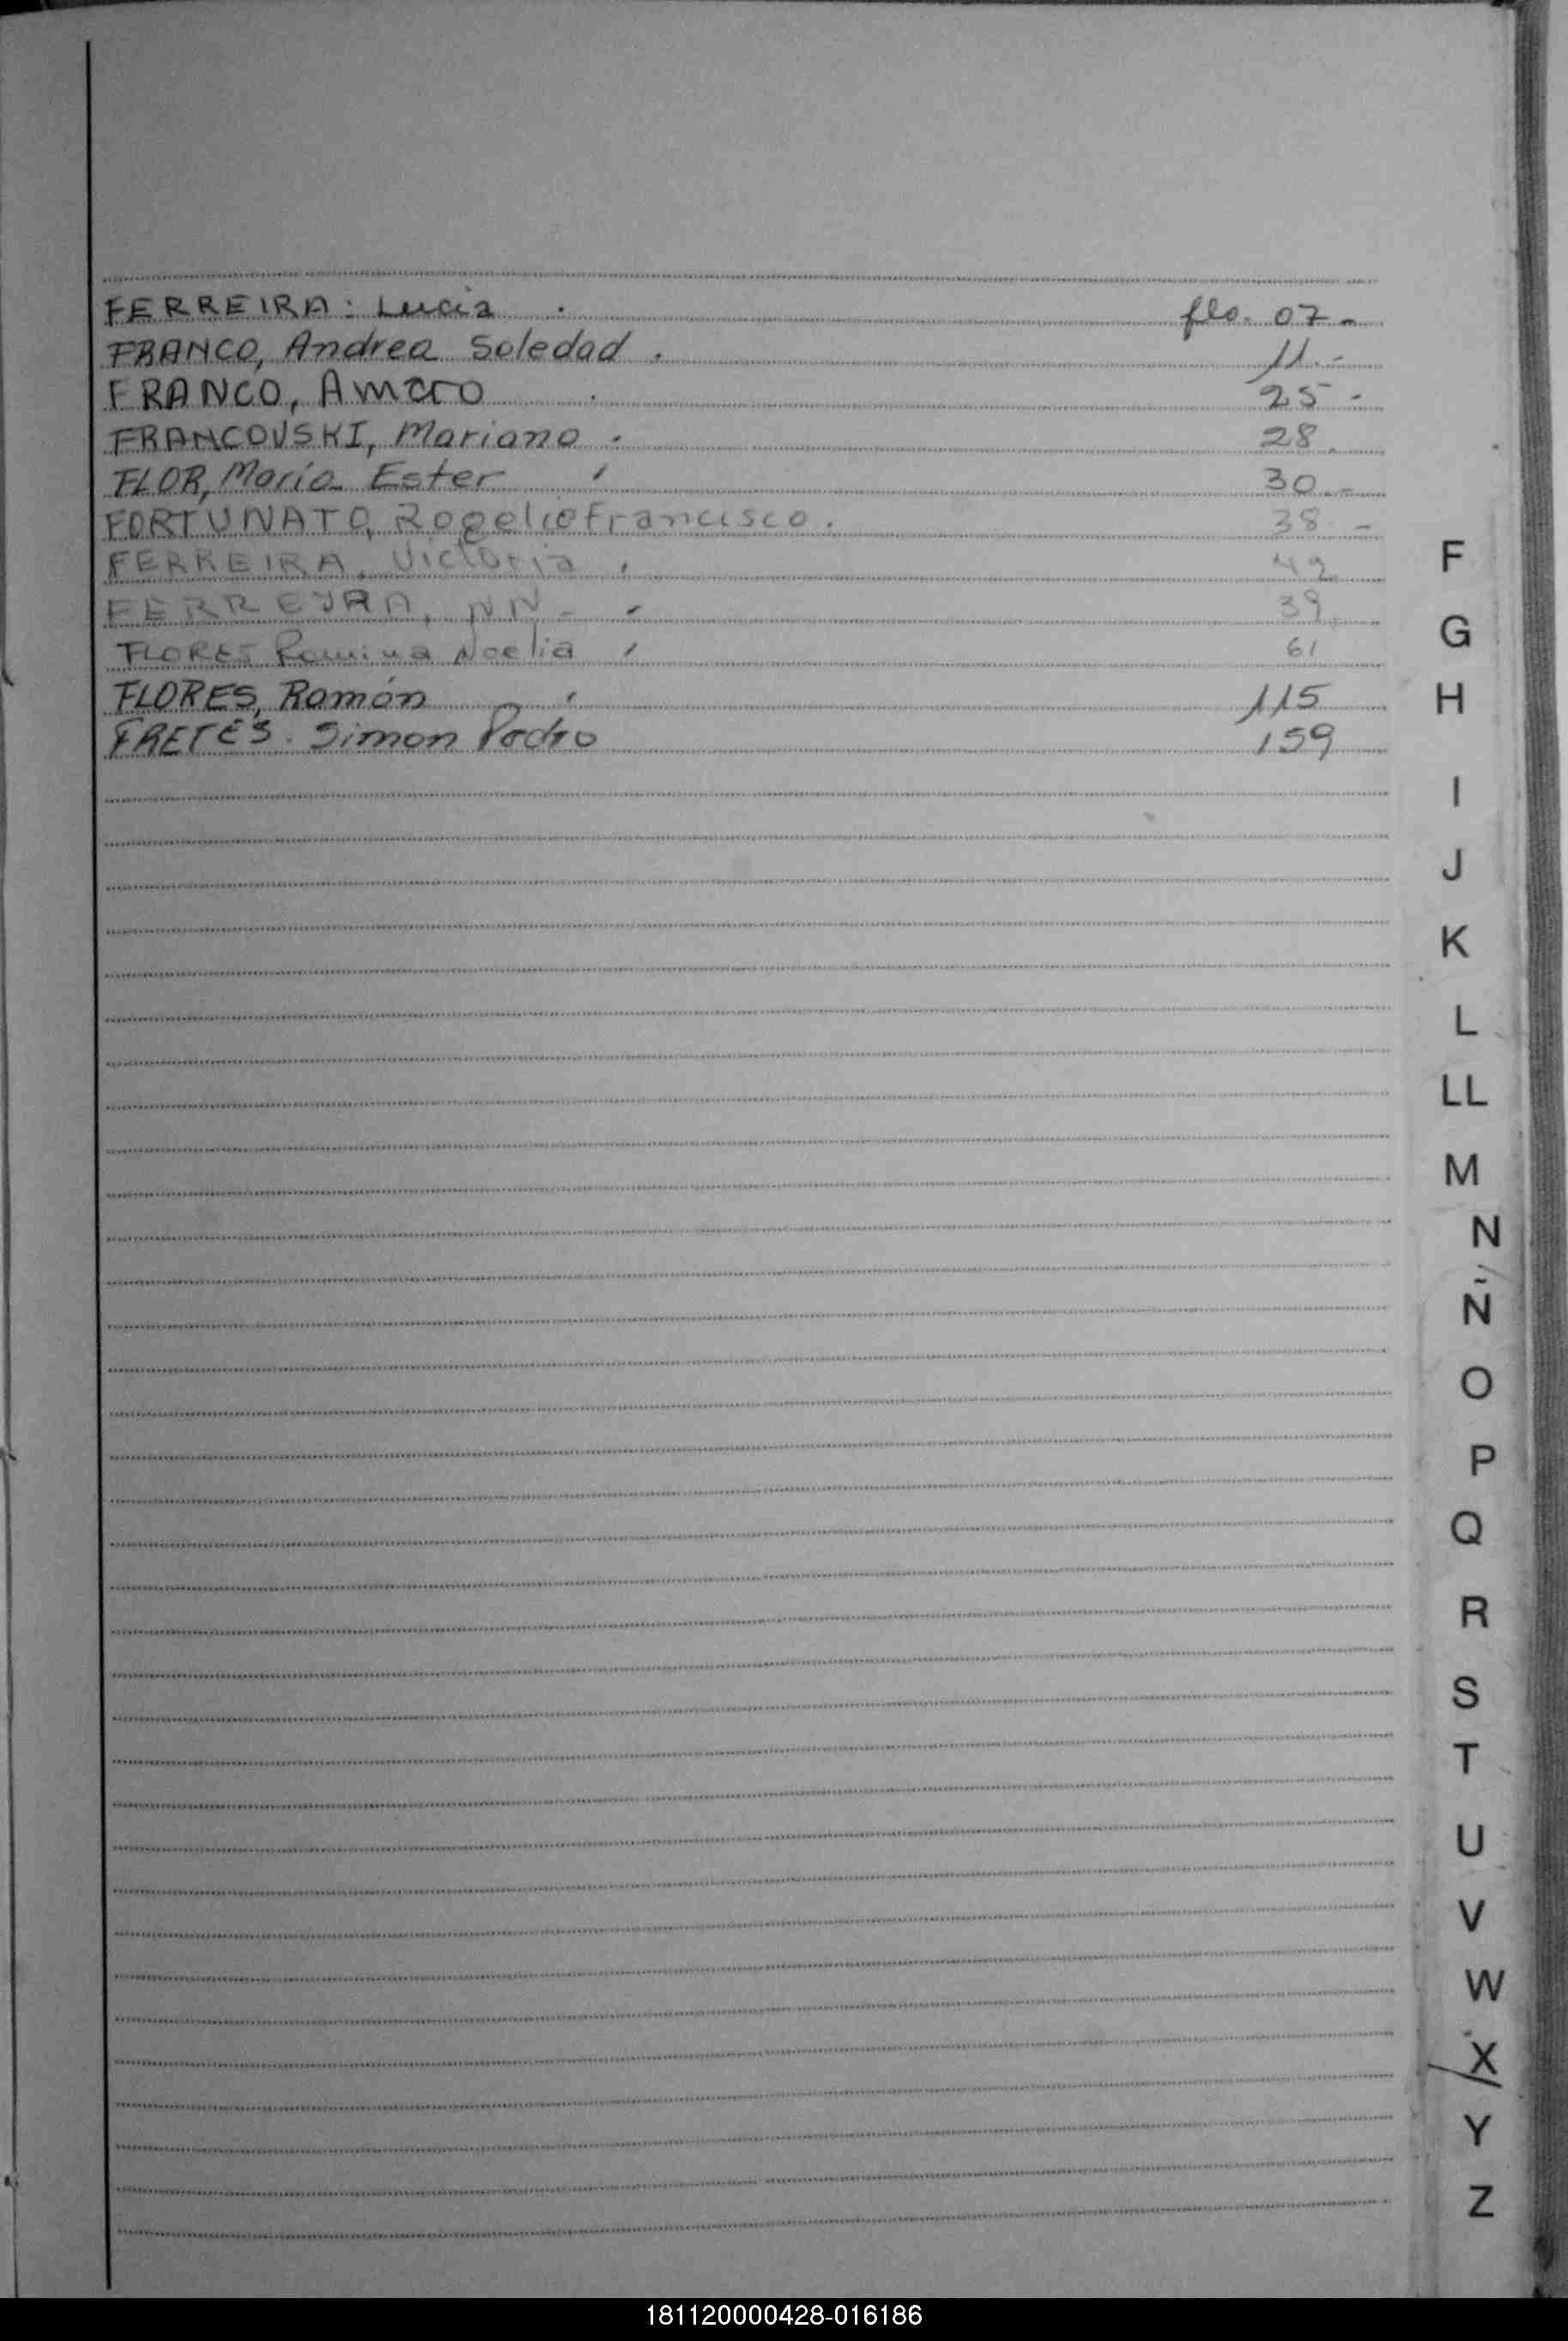 FERREIRA: Lucia . flo. 07.-
FRANCO, Andrea Soledad . 11.-
FRANCO, Amaro . 25 -
FRANCOVSKI, Mariano . 28
FLOR, María Ester 30.-
FORTUNATO, Rogelio Francisco. 38 -
FERREIRA, Victoria . 42
FERREYRA, NN - 39
FLORES Romina Noelia 61
FLORES, Ramón 115
FRETES. Simon Pedro 159
F
G
H
I
J
K
L
LL
M
N
Ñ
O
P
Q
R
S
T
U
V
W
X
Y
Z
181120000428-016186